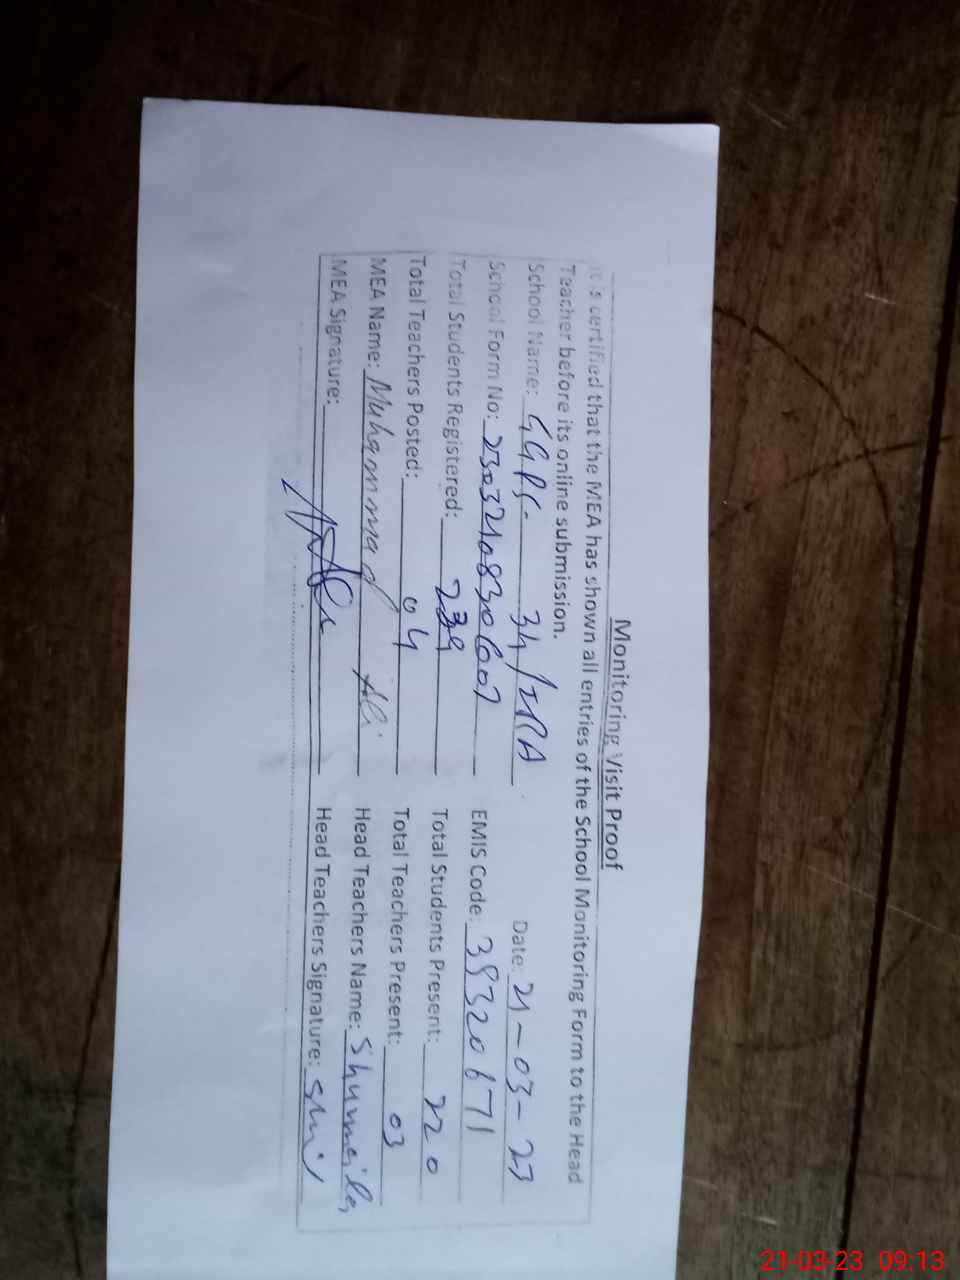 Monitoring Visit Proof
It is certified that the MEA has shown all entries of the School Monitoring Form to the Head
Teacher before its online submission.
School Name: GGPS. 34/2RA Date: 21-03-23
School Form No: EMIS Code: 39320671
Total Students Registered: 239 Total Students Present: 220
Total Teachers Posted: 04 Total Teachers Present: 03
MEA Name: Muhammad Ali Head Teachers Name: Shumaila
MEA Signature: Head Teachers Signature:
21-03-23 09:13